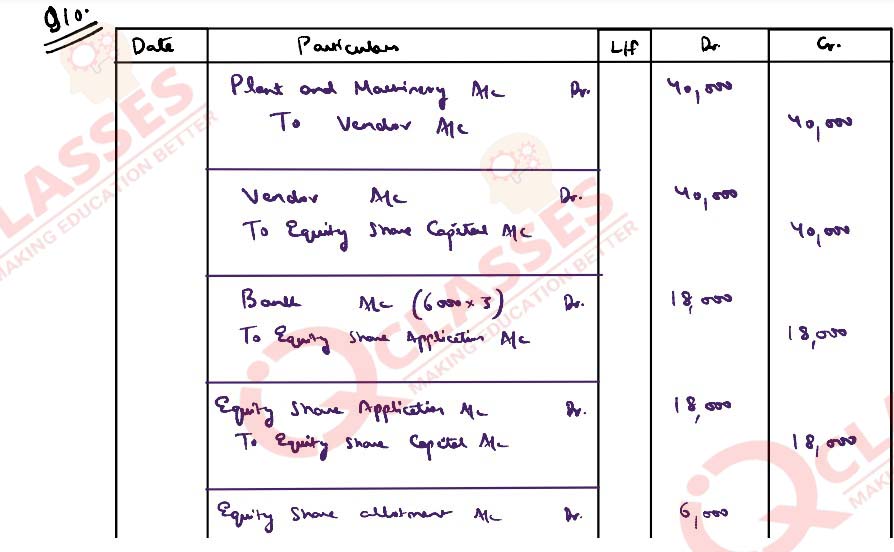 Q10.
Date Particulars L/f Dr. Cr.
Plant and Machinery A/c Dr. 40,000
To Vendor A/c 40,000
Vendor A/c Dr. 40,000
To Equity Share Capital A/c 40,000
Bank A/c (6000 x 3) Dr. 18,000
To Equity Share Application A/c 18,000
Equity Share Application A/c Dr. 18,000
To Equity Share Capital A/c 18,000
Equity Share allotment A/c Dr. 6,000
CLASSES
MAKING EDUCATION BETTER
IQ CLASSES
MAKING EDUCATION BETTER
IQ CLAS
MAKING